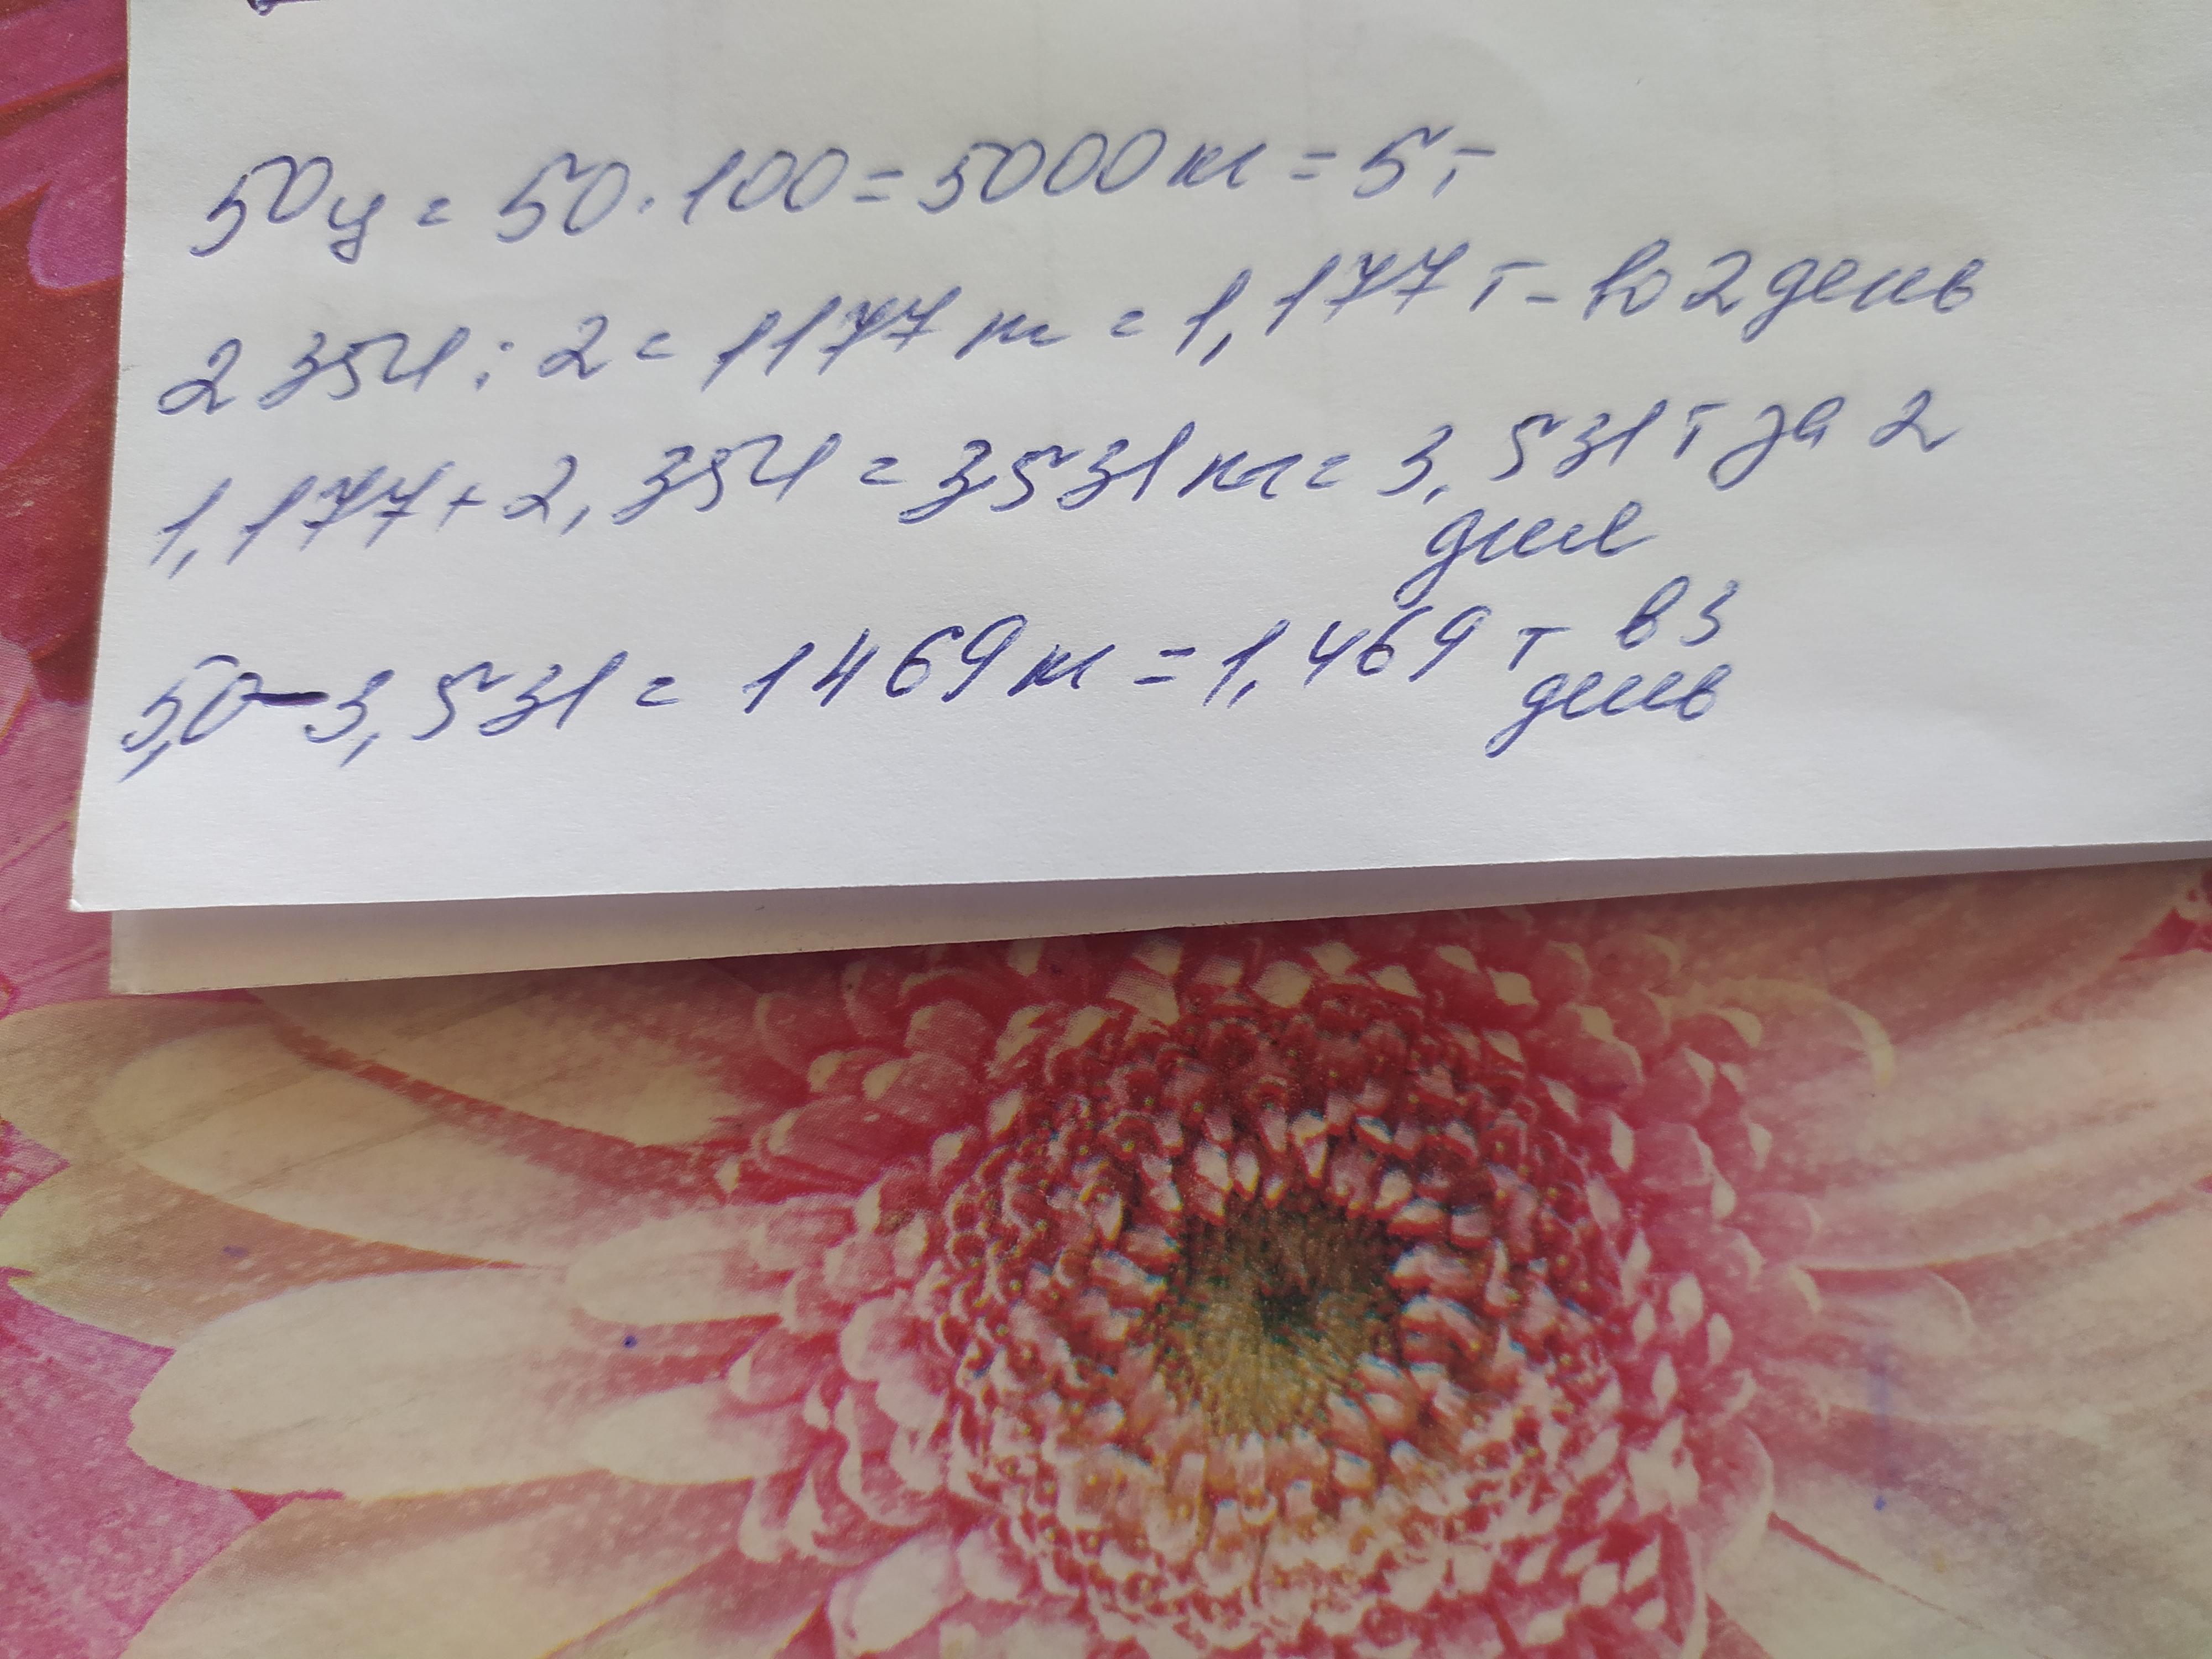 50ц = 50 · 100 = 5000 кг = 5т
2354 : 2 = 1177 кг = 1,177 т - во 2 день
1,177 + 2,354 = 3531 кг = 3,531 т за 2
дня
5,0 - 3,531 = 1469 кг = 1,469 т в 3
день